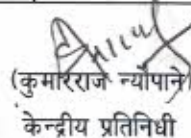 (कुमारराज न्यौपाने)
केन्द्रीय प्रतिनिधी